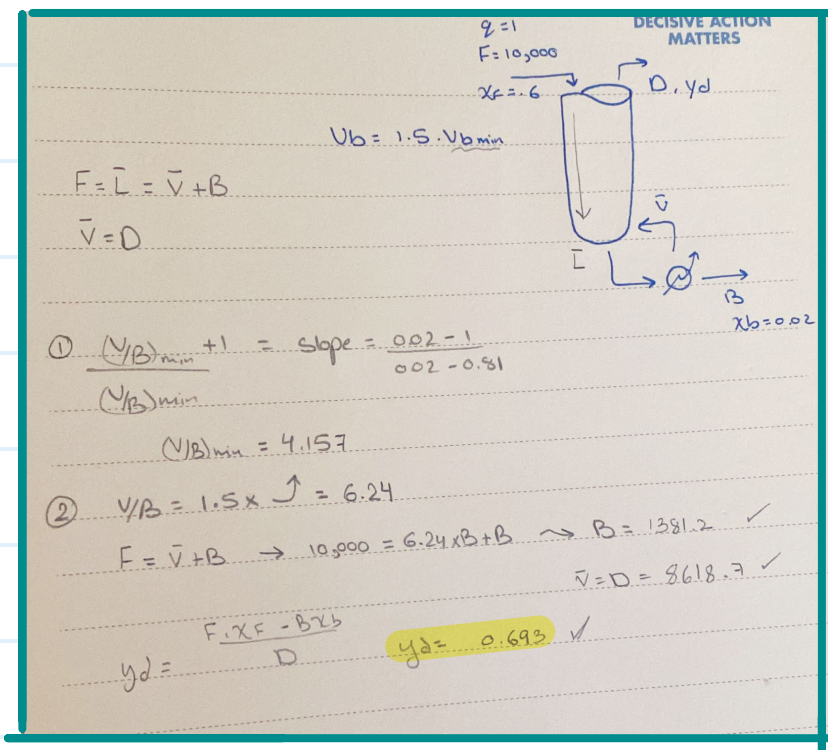 DECISIVE ACTION
MATTERS
q = 1
F = 10,000
xF = .6
D, yd
Vb = 1.5 · Vbmin
F = L̄ = V̄ + B
V̄ = D
V̄
L̄
B
xb = 0.02
① (V/B)min + 1 / (V/B)min = slope = 0.02 - 1 / 0.02 - 0.81
(V/B)min = 4.157
② V/B = 1.5 x ⤴ = 6.24
F = V̄ + B → 10,000 = 6.24 x B + B ⤳ B = 1381.2 ✓
V̄ = D = 8618.7 ✓
yd = F · xF - B xb / D
yd = 0.693 ✓